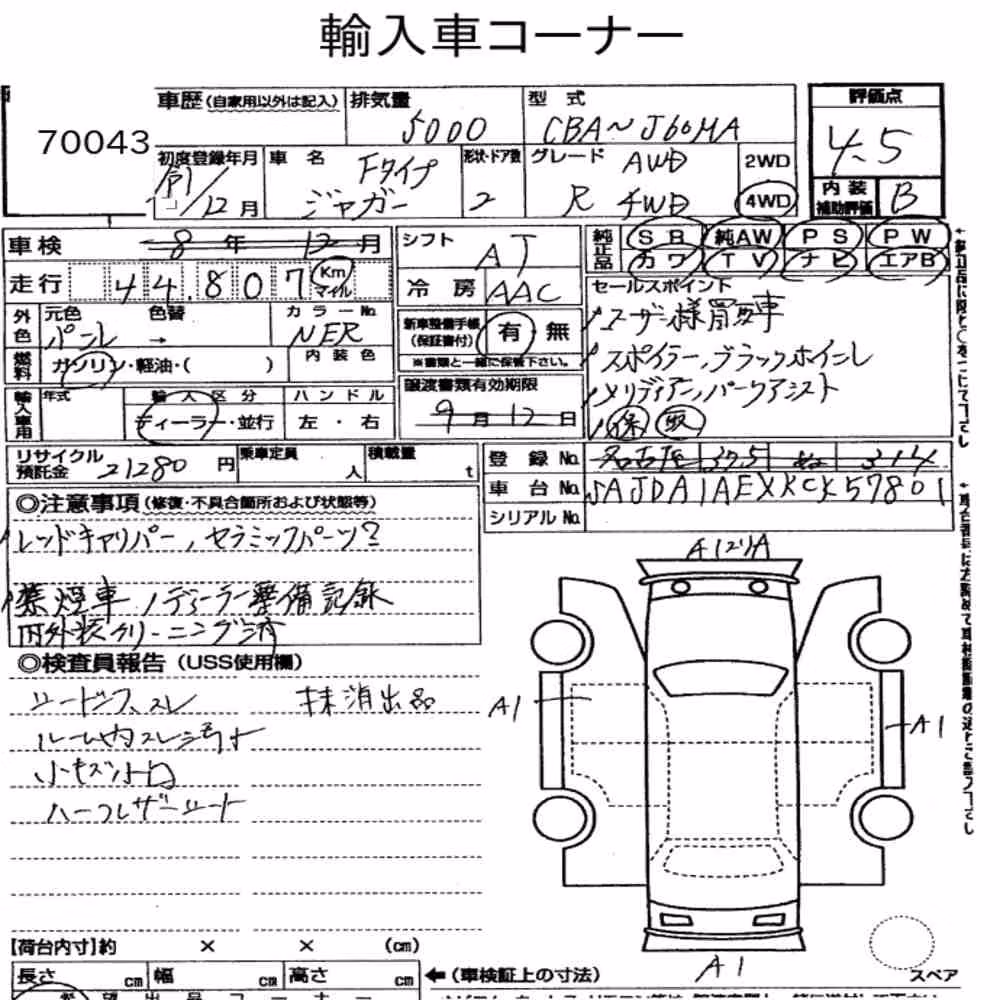 輸入車コーナー
70043
車歴 (自家用以外は記入)
排気量
5000
型式
CBA~J60MA
評価点
4.5
初度登録年月
令1/12月
車名
Fタイプ
ジャガー
形状・ドア数
2
グレード
AWD
R 4WD
2WD
4WD
内装
補助評価
B
車検
8年 12月
シフト
AT
純正品
SR 純AW PS PW
カワ TV ナビ エアB
走行
44.807
Km
マイル
冷房
AAC
セールスポイント
ユーザー様買取車
スポイラー、ブラックホイール
メリディアン、パークアシスト
保 取
外色
元色 色替
パール →
カラーNo.
NER
新車整備手帳
(保証書付)
有 無
※書類と一緒に保管下さい。
燃料
ガソリン・軽油・( )
内装色
譲渡書類有効期限
9月12日
輸入車用
年式
輸入区分
ディーラー・並行
ハンドル
左・右
リサイクル
預託金
21280円
乗車定員
人
積載量
t
登録No.
名古屋 375 ぬ 314
車台No.
SAJDA1AEXKCK57801
シリアルNo.
◎注意事項 (修復・不具合箇所および状態等)
レッドキャリパー、セラミックパーツ?
禁煙車 / ディーラー整備記録
内外装クリーニング済
◎検査員報告 (USS使用欄)
抹消出品
シートシワ、スレ
ルーム内スレ汚れ
小キズ凹
ハーフレザーシート
A12リA
A1
A1
A1
スペア
【荷台内寸】約 × × (cm)
長さ cm 幅 cm 高さ cm
← (車検証上の寸法)
希望出品コーナー